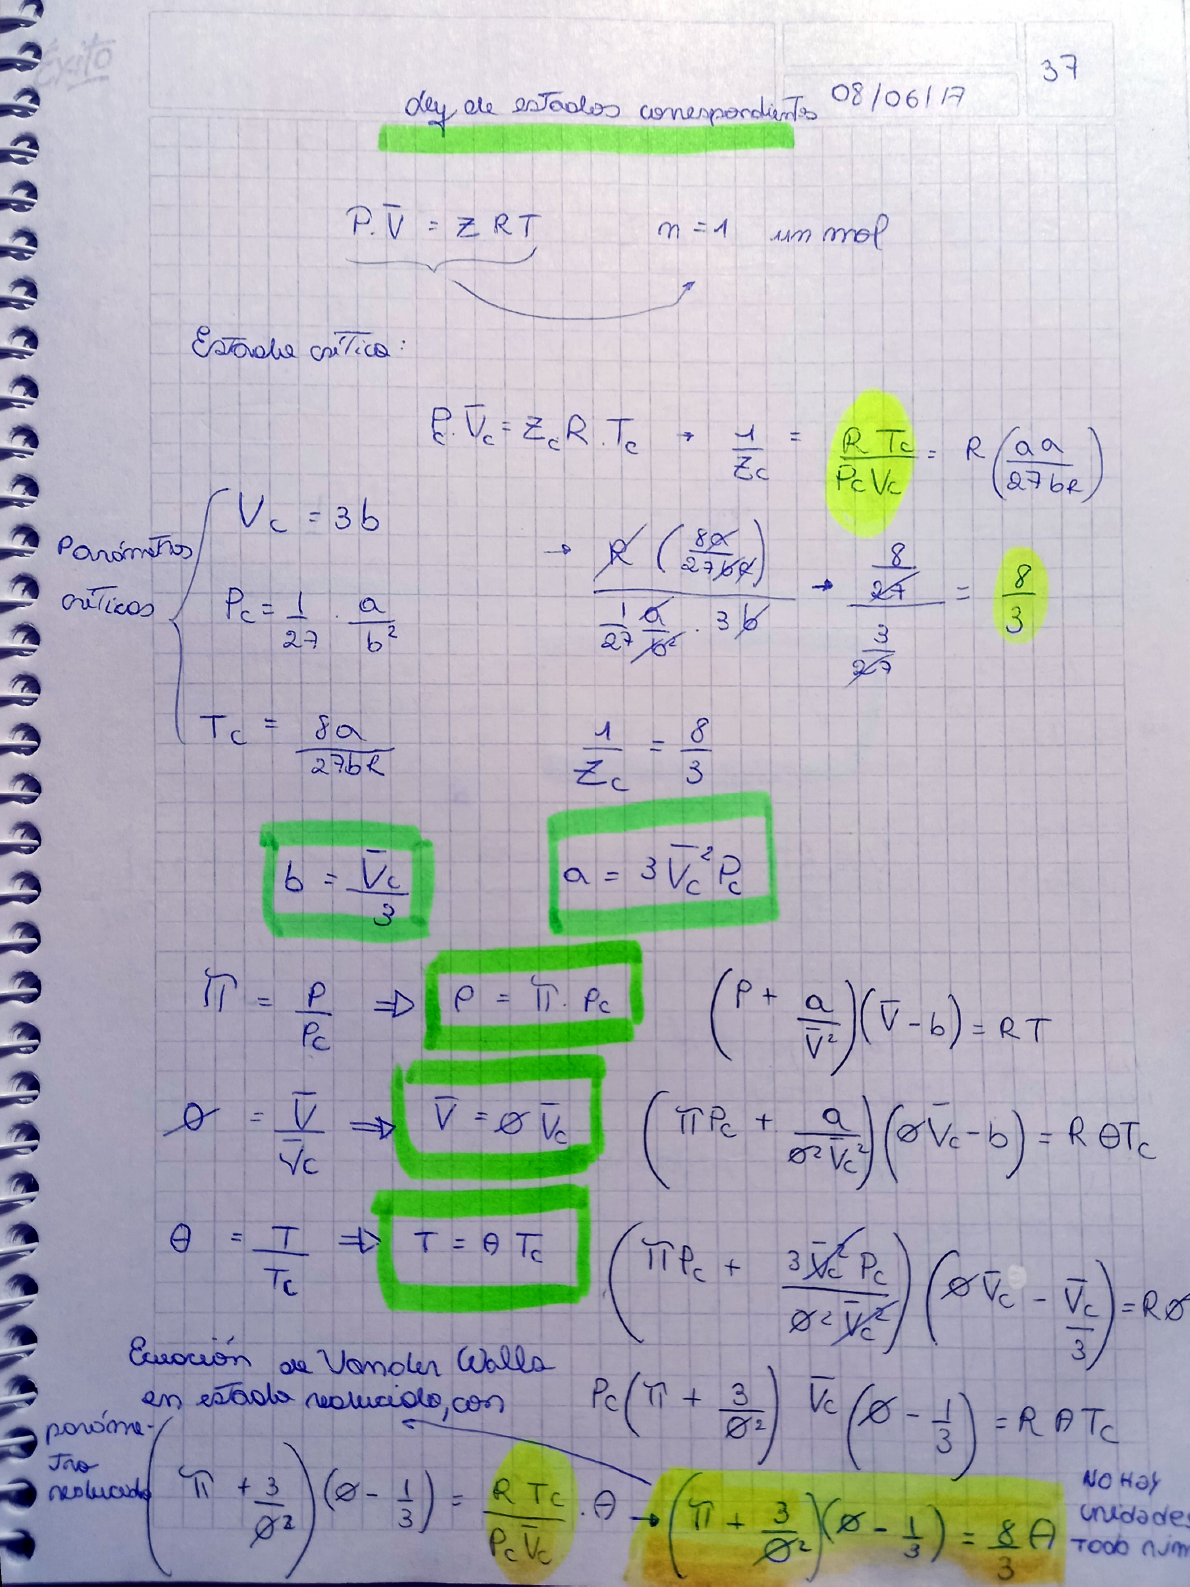 éxito
37
08/06/17
Ley de estados correspondientes
P.V̄ = Z R T     n = 1   un mol
Estado crítico:
Pc.V̄c = Zc R . Tc → 1/Zc = R Tc/Pc Vc = R (aa/27bR)
Parámetros críticos
Vc = 3b
→ R (8a/27bR) / (1/27 a/b² . 3b) → (8/27)/(3/27) = 8/3
Pc = 1/27 . a/b²
Tc = 8a/27bR     1/Zc = 8/3
b = V̄c/3     a = 3 V̄c² Pc
π = P/Pc ⇒ P = π . Pc     (P + a/V̄²)(V̄ - b) = R T
ø = V̄/V̄c ⇒ V̄ = ø V̄c     (π Pc + a/ø² V̄c²)(ø V̄c - b) = R θ Tc
θ = T/Tc ⇒ T = θ Tc     (π Pc + 3 V̄c² Pc/ø² V̄c²)(ø V̄c - V̄c/3) = R ø
Ecuación de Vander Walls
en estado reducido, con
paráme-
tro
reducido
Pc (π + 3/ø²) V̄c (ø - 1/3) = R θ Tc
(π + 3/ø²)(ø - 1/3) = R Tc/Pc V̄c . θ → (π + 3/ø²)(ø - 1/3) = 8/3 θ
NO HAY
unidades
TODO núm